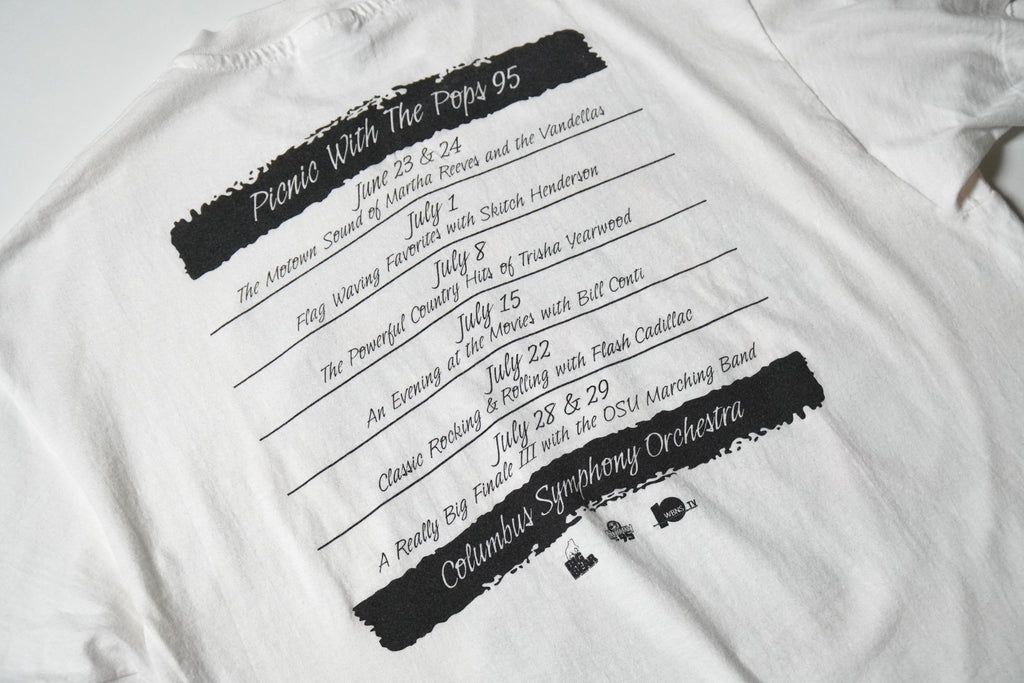 Picnic With The Pops 95
June 23 & 24
The Motown Sound of Martha Reeves and the Vandellas
July 1
Flag Waving Favorites with Skitch Henderson
July 8
The Powerful Country Hits of Trisha Yearwood
July 15
An Evening at the Movies with Bill Conti
July 22
Classic Rocking & Rolling with Flash Cadillac
July 28 & 29
A Really Big Finale III with the OSU Marching Band
Columbus Symphony Orchestra
10 WBNS TV